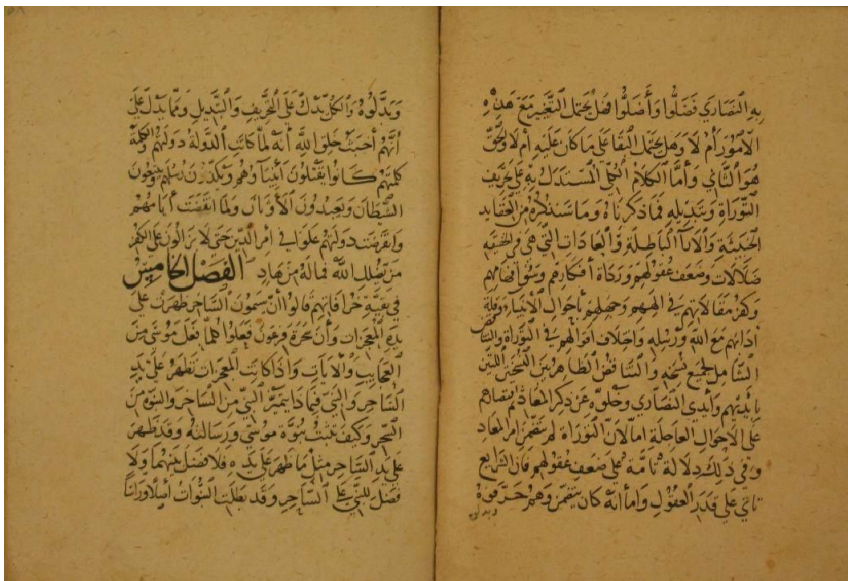 به النصارى فضلّوا وأضلّوا فهل يحتمل التغيير مع هذه
الامور أم لا وهل يحتمل البقا على ما كان عليه أم لا والحقّ
هو الثاني وأما الكلام المستدل به على تحريف
التوراة وتبديله فما ذكرناه وما سنذكره من العقايد
الخبيثة والارآ الباطلة والعادات التي هي في الحقيقة
ضلالات وضعف عقولهم ورداة أفكارهم وسوء أفهامهم
وكفر مقالاتهم في الههم وجهلهم بأحوال الأنبياء وقلة
ادابهم مع الله ورسله واختلاف اقوالهم في التوراة
الشامل لجميع نسخه والتناقض الظاهر بين النسختين اللتين
بأيديهم وأيدي النصارى وخلوّه عن ذكر المعاد
على الاحوال العاجلة اما لأن التوراة لم يتضمن امر المعاد
وفي ذلك دلالة تامة على ضعف عقولهم فان الشرايع
تاتي على قدر العقول واما أنه كان يتضمن وهم حرفوه
وبدلوه
وبدّلوه والكل يدلّ على التحريف والتبديل ومما يدل على
أنهم أخبث خلق الله أنه لما كانت الدولة دولتهم والكلمة
كلمتهم كانوا يقتلون أنبياؤهم ويكذبون رسلهم ويتبعون
الشيطان ويعبدون الأوثان ولما انقضت أيامهم
وانقرضت دولتهم في امر الدين حتى لا يزالون على الكفر
من يضلل الله فماله من هاد الفصل الخامس
في بقية خرافاتهم قالوا انّ سيمون الساحر ظهرت على
يده المعجزات وأن سحرة فرعون فعلوا كما فعل موسى من
العجايب والآيات واذا كانت المعجزات تظهر على يد
الساحر والنبي فبماذا يتميز النبي من الساحر والنبوة من
السحر وكيف تثبت نبوة موسى ورسالته وقد ظهر
على يد الساحر مثل ما ظهر على يده فلا فضل عنهما ولا
فضل للنبي على الساحر وقد بطلت النبوات أصلا ورأسا